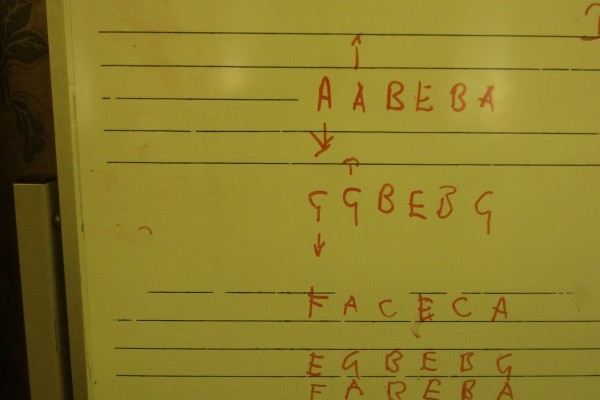 A A B E B A
G G B E B G
F A C E C A
E G B E B G